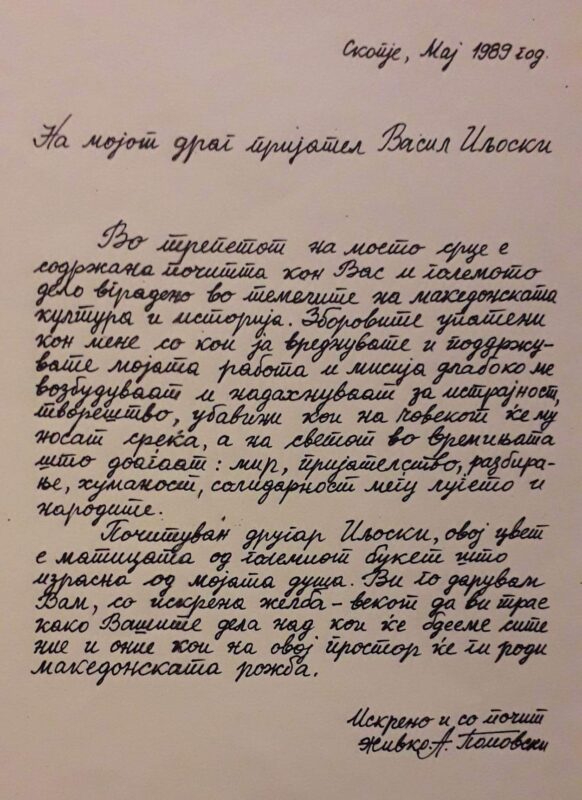 Скопје, Мај 1989 год.
На мојот драг пријател Васил Иљоски
Во трепетот на моето срце е
содржана почитта кон Вас и големото
дело вградено во темелите на македонската
култура и историја. Зборовите упатени
кон мене со кои ја вреднувате и поддржу-
вате мојата работа и мисија длабоко ме
возбудуваат и надахнуваат за истрајност,
творештво, убавини кои на човекот ќе му
носат среќа, а на светот во времињата
што доаѓаат: мир, пријателство, разбира-
ње, хуманост, солидарност меѓу луѓето и
народите.
Почитуван другар Иљоски, овој цвет
е матицата од големиот букет што
израсна од мојата душа. Ви го дарувам
Вам, со искрена желба - векот да ви трае
како Вашите дела над кои ќе бдееме сите
ние и оние кои на овој простор ќе ги роди
македонската рожба.
Искрено и со почит
Живко А. Поповски